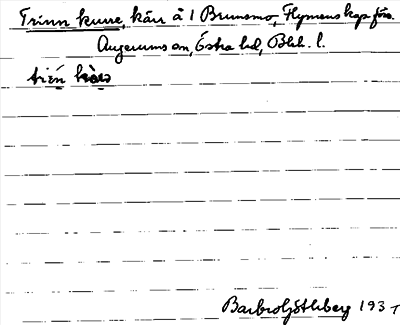 Trinn kurre, kärr å 1 Brunsmo, Flymens kap. förs.
Augerums sn, Östra hd, Blek. l.
trién
Barbro Göthberg 1937